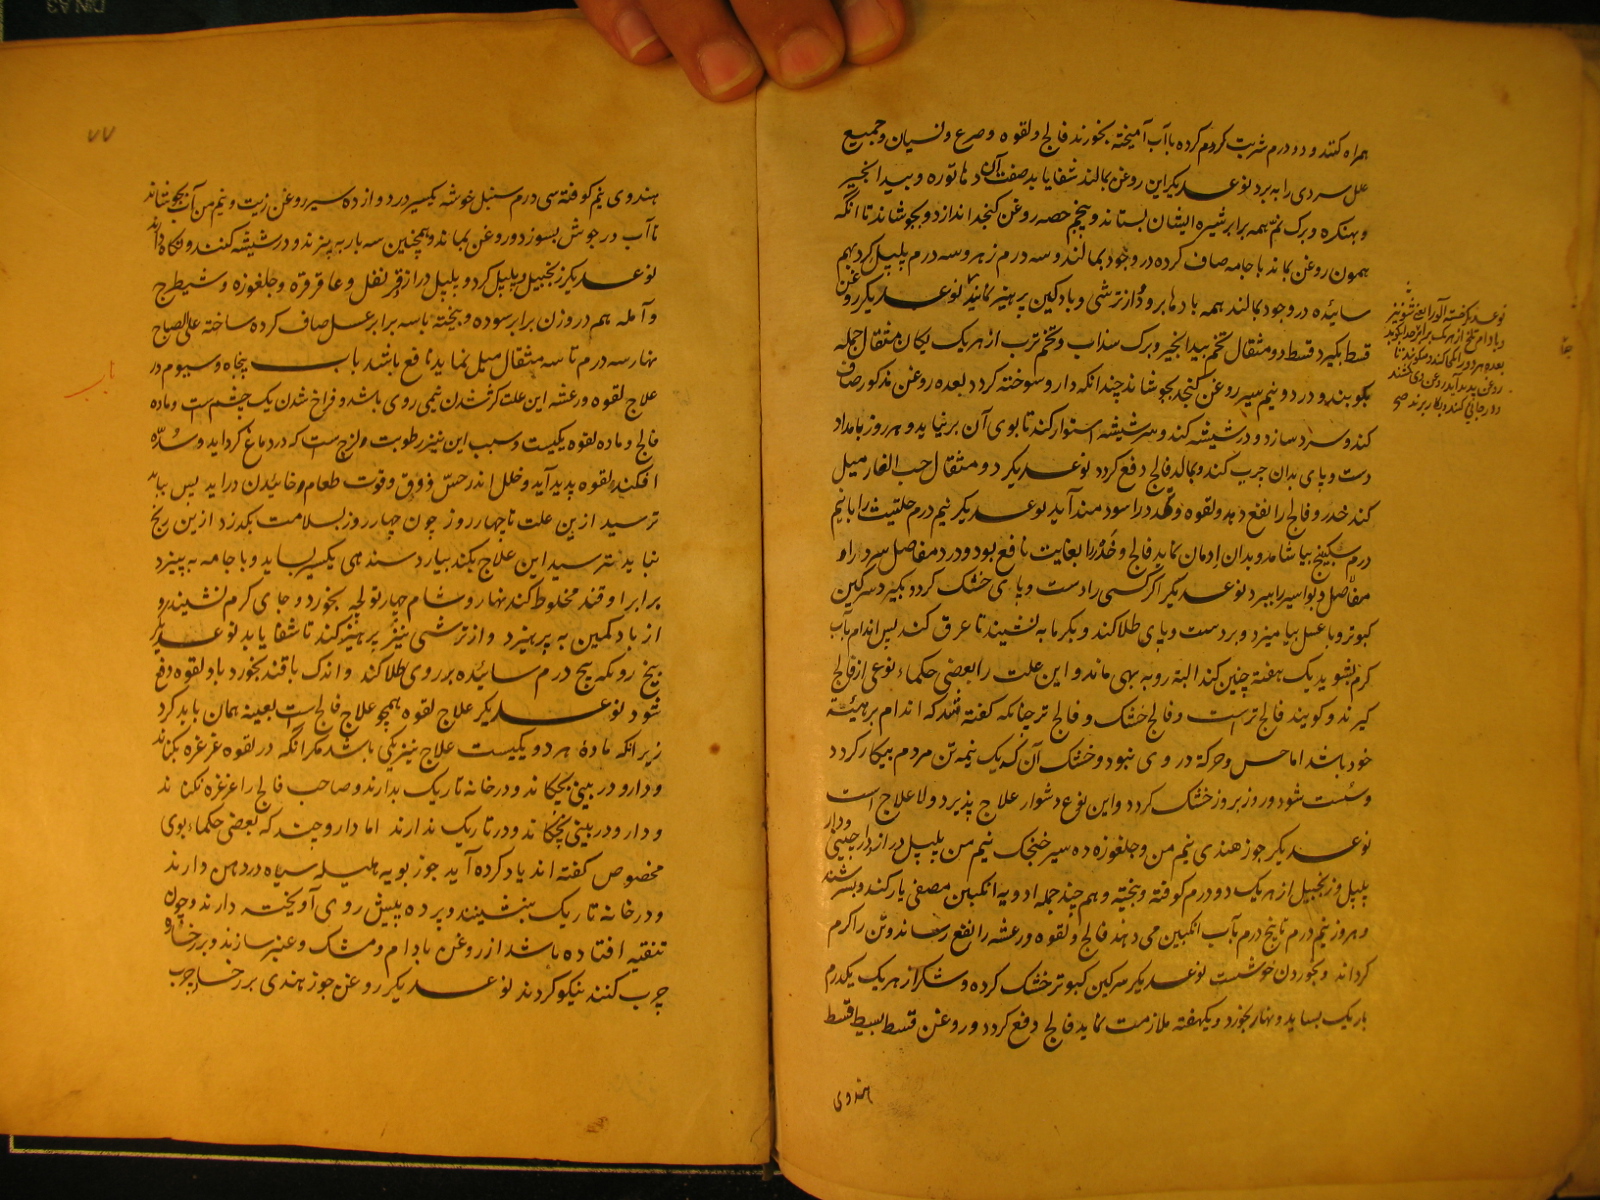 همراه کنند و دو درم شربت کردم کرده باآب آمیخته بخورند فالج و لقوه و صرع و نسیان و جمیع
علل سردی را به برد نوعدیکر این روغن بمالند شفا یابد صفت آن دهاتوره و بیدانجیر
و بهنکره و برک نیم همه برابر شیره ایشان بستاند و پنجم حصه روغن کنجد اندازد و بجوشاند تا انکه
همون روغن بماند با جامه صاف کرده در وجود بمالند و سه درم زهر و سه درم پلپل کرد بهم
سائیده در وجود بمالند همه بادها برود و از ترشی و بادکین پرهیز نمایند نوعدیکر روغن
قسط بکیرد قسط دو مثقال تخم بیدانجیر و برک سذاب و تخم ترب از هر یک یکان مثقال جمله
بکوبند و در دو نیم سیر روغن کنجد بجوشاند چندانکه دارو سوخته کردد بعده روغن مذکور صاف
کند و سرد سازد و در شیشه کند و سر شیشه استوار کند تا بوی آن برنیاید و هر روز بامداد
دست و پای بدان چرب کند و بمالد فالج دفع کردد نوعدیکر دو مثقال حب الغار میل
کند خدر و فالج را نفع دهد و لقوه و را سودمند آید نوعدیکر نیم درم حلتیت را با نیم
درم سکبینج بیاشامد و بدان ادمان نماید فالج و خدر را بغایت نافع بود و درد مفاصل سرد را و
مفاصل و بواسیر را ببرد نوعدیکر اکر کسی را دست و پای خشک کردد بکیرد سرکین
کبوتر و با عسل بیامیزد و بر دست و پای طلا کند و بکرمابه نشیند تا عرق کند پس اندام بآب
کرم بشوید یک هفته چنین کند البته رو به بهی ماند و این علت را بعضی حکماء نوعی از فالج
کیرند و کویند فالج تر است و فالج خشک و فالج تر چنانکه کفته شد که اندام بر هیئة
خود باشد اما حس و حرکة در وی نبود و خشک آن که یک نیمه تن مردم بیکار کردد
و سست شود و روز بروز خشک کردد و این نوع دشوار علاج پذیرد و لا علاج است
نوعدیکر جوز هندی نیم من و جلغوزه ده سیر خنجک نیم من پلپل دراز و دارچینی و دار
پلپل و زنجبیل از هر یک دو درم کوفته و بیخته و هم چند جمله ادویه انکبین مصفی یار کند و بسرشند
و هر روز نیم درم تا پنج درم بآب انکبین می دهند فالج و لقوه و رعشه را نفع رساند و تن را کرم
کرداند و بخوردن خوشست نوعدیکر سرکین کبوتر خشک کرده و شکر از هر یک یکدرم
باریک بساید و نهار بخورد و یکهفته ملازمت نماید فالج دفع کردد و روغن قسط بسیط قسط
هندوی
نوعدیکر
و بادام تلخ از هر یک برابر جدا بکوبد
بعده هر دو را یکجا کند و بکوبند تا
روغن پدید آید روغن
و در جائی کند و بکار برند صح
۷۷
هندوی نیم کوفته سی درم سنبل خوشه یکسیر در دوازده سیر روغن زیت و نیم من آب بجوشاند
تا آب در جوش بسوزد و روغن بماند و همچنین سه بار به پزند و در شیشه کنند و نکاه دارند
نوعدیکر زنجبیل و پلپل کرد و پلپل دراز و قرنفل و عاقرقره و جلغوزه و شیطرج
و آمله هم در وزن برابر سوده و بیخته با سه برابر عسل صاف کرده ساخته علی الصباح
نهار سه درم تا سه مثقال میل نماید نافع باشد باب پنجاه و سیوم در
علاج لقوه و رعشه این علت کژ شدن نیمی روی باشد و فراخ شدن یک چشم است و ماده
فالج و ماده لقوه یکیست و سبب این نیز رطوبت و لزج است که در دماغ کرد اید و سدّه
افکند لقوه پدید آید و خلل اندر حسّ ذوق و قوت طعام و خائیدن دراید پس بباید
ترسید ازین علت تا چهار روز چون چهار روز بسلامت بکدزد ازین رنج
نباید ترسید این علاج بکند بیارد سندهی یکسیر بساید و با جامه به بیزد
برابر او قند مخلوط کند نهار و شام چهار تولچه بخورد و جای کرم نشیند و
از بادکمین به پرهیزد و از ترشی نیز پرهیز کند تا شفا یابد نوعدیکر
بیخ رونکه پنج درم سائیده بر روی طلا کند و اندک با قند بخورد باد لقوه دفع
شود نوعدیکر علاج لقوه همچو علاج فالج است بعینه همان باید کرد
زیرانکه مادۀ هر دو یکیست علاج نیز یکی باشد مکر انکه در لقوه غرغره بکناند
و دارو در بینی بچکاند و در خانه تاریک بدارند و صاحب فالج را غرغره نکنانند
و دارو در بینی نچکانند و در تاریک ندارند اما دارو چند که بعضی حکماء بوی
مخصوص کفته اند یاد کرده آید جوز بویه هلیله سیاه در دهن دارند
و در خانه تاریک بنشینند و پرده پیش روی آویخته دارند و چون
تنقیه افتاده باشد از روغن بادام و مشک و عنبر سازند و بر رخساره
چرب کنند نیکو کردند نوعدیکر روغن جوز هندی بر رخسار چرب